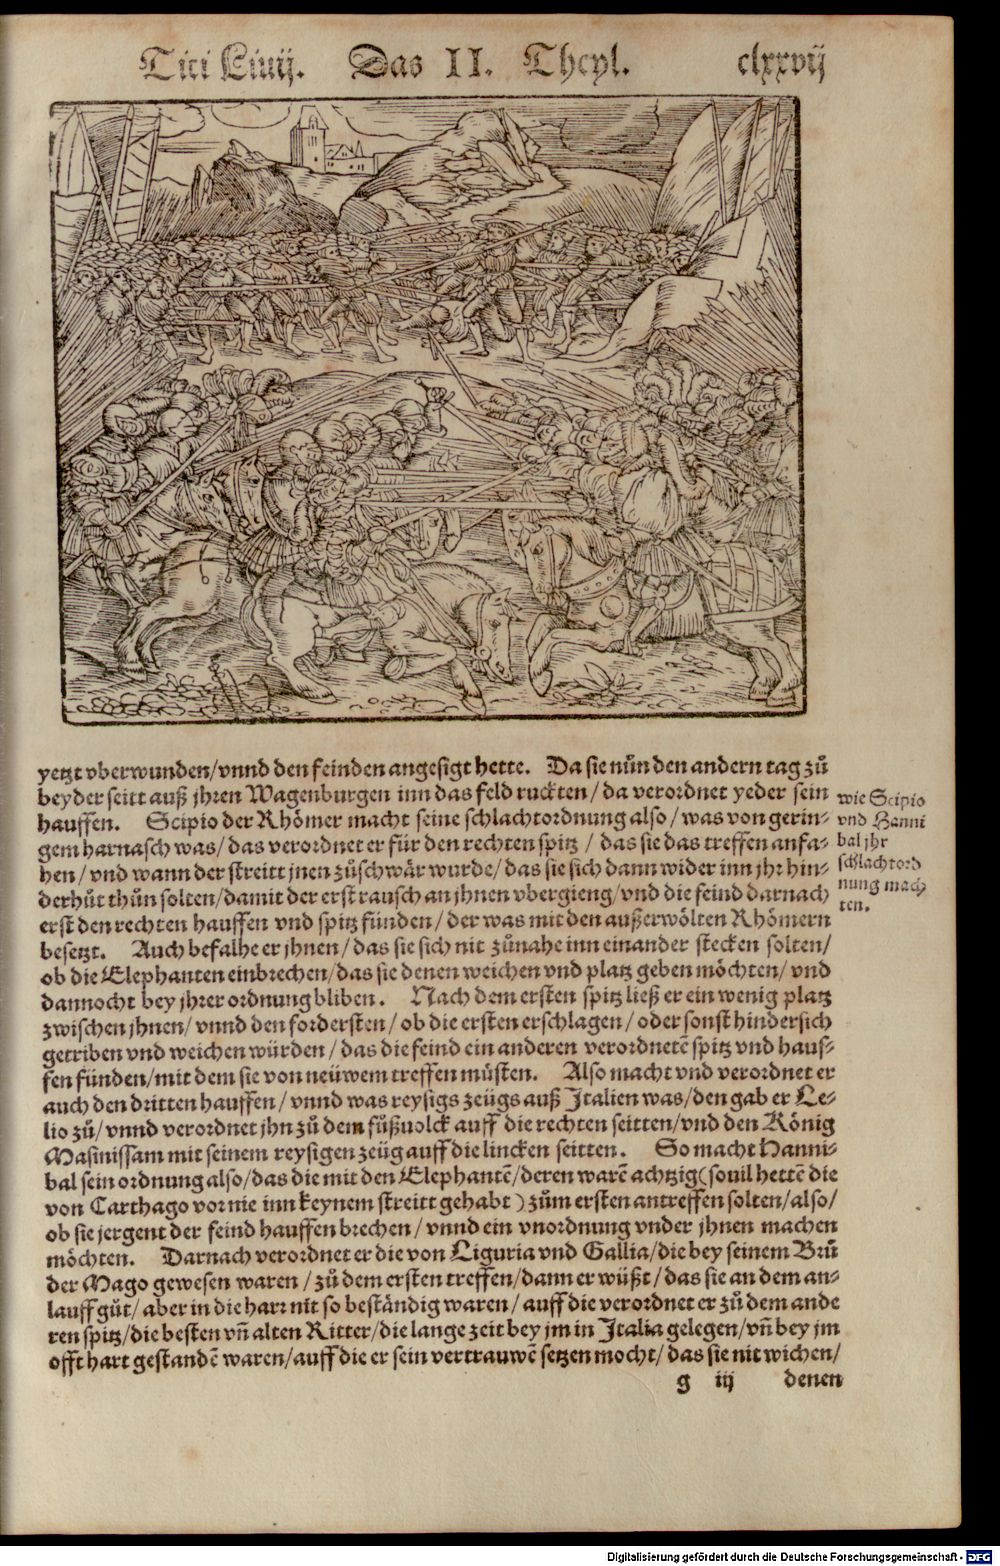 Titi Liuij. Das II. Theyl. clxxvij
yetzt vberwunden/vnnd den feinden angesigt hette. Da sie nůn den andern tag zů
beyder seitt auß jhren Wagenburgen inn das feld ruckten/da verordnet yeder sein
hauffen. Scipio der Rhömer macht seine schlachtordnung also/was von gerin⸗
gem harnasch was/das verordnet er für den rechten spitz/das sie das treffen anfa⸗
hen/vnd wann der streitt jnen zůschwär wurde/das sie sich dann wider inn jhr hin⸗
derhůt thůn solten/damit der erst rausch an jhnen vbergieng/vnd die feind darnach
erst den rechten hauffen vnd spitz fünden/der was mit den außerwölten Rhömern
besetzt. Auch befalhe er jhnen/das sie sich nit zůnahe inn einander stecken solten/
ob die Elephanten einbrechen/das sie denen weichen vnd platz geben möchten/vnd
dannocht bey jhrer ordnung bliben. Nach dem ersten spitz ließ er ein wenig platz
zwischen jhnen/vnnd den fordersten/ob die ersten erschlagen/oder sonst hindersich
getriben vnd weichen würden/das die feind ein anderen verordnetē spitz vnd hauf⸗
fen fünden/mit dem sie von neüwem treffen müsten. Also macht vnd verordnet er
auch den dritten hauffen/vnnd was reysigs zeügs auß Italien was/den gab er Le⸗
lio zů/vnnd verordnet jhn zů dem fůßuolck auff die rechten seitten/vnd den König
Masinissam mit seinem reysigen zeüg auff die lincken seitten. So macht Hanni⸗
bal sein ordnung also/das die mit den Elephantē/deren warē achtzig(souil hettē die
von Carthago vor nie inn keynem streitt gehabt)zům ersten antreffen solten/also/
ob sie jergent der feind hauffen brechen/vnnd ein vnordnung vnder jhnen machen
möchten. Darnach verordnet er die von Liguria vnd Gallia/die bey seinem Brů
der Mago gewesen waren/zů dem ersten treffen/dann er wüßt/das sie an dem an⸗
lauff gůt/aber in die harr nit so beständig waren/auff die verordnet er zů dem ande
ren spitz/die besten vn̄ alten Ritter/die lange zeit bey jm in Italia gelegen/vn̄ bey jm
offt hart gestandē waren/auff die er sein vertrauwē setzen mocht/das sie nit wichen/
g iij denen
wie Scipio
vnd Hanni
bal jhr
schlachtord
nung mach
ten.
Digitalisierung gefördert durch die Deutsche Forschungsgemeinschaft - DFG